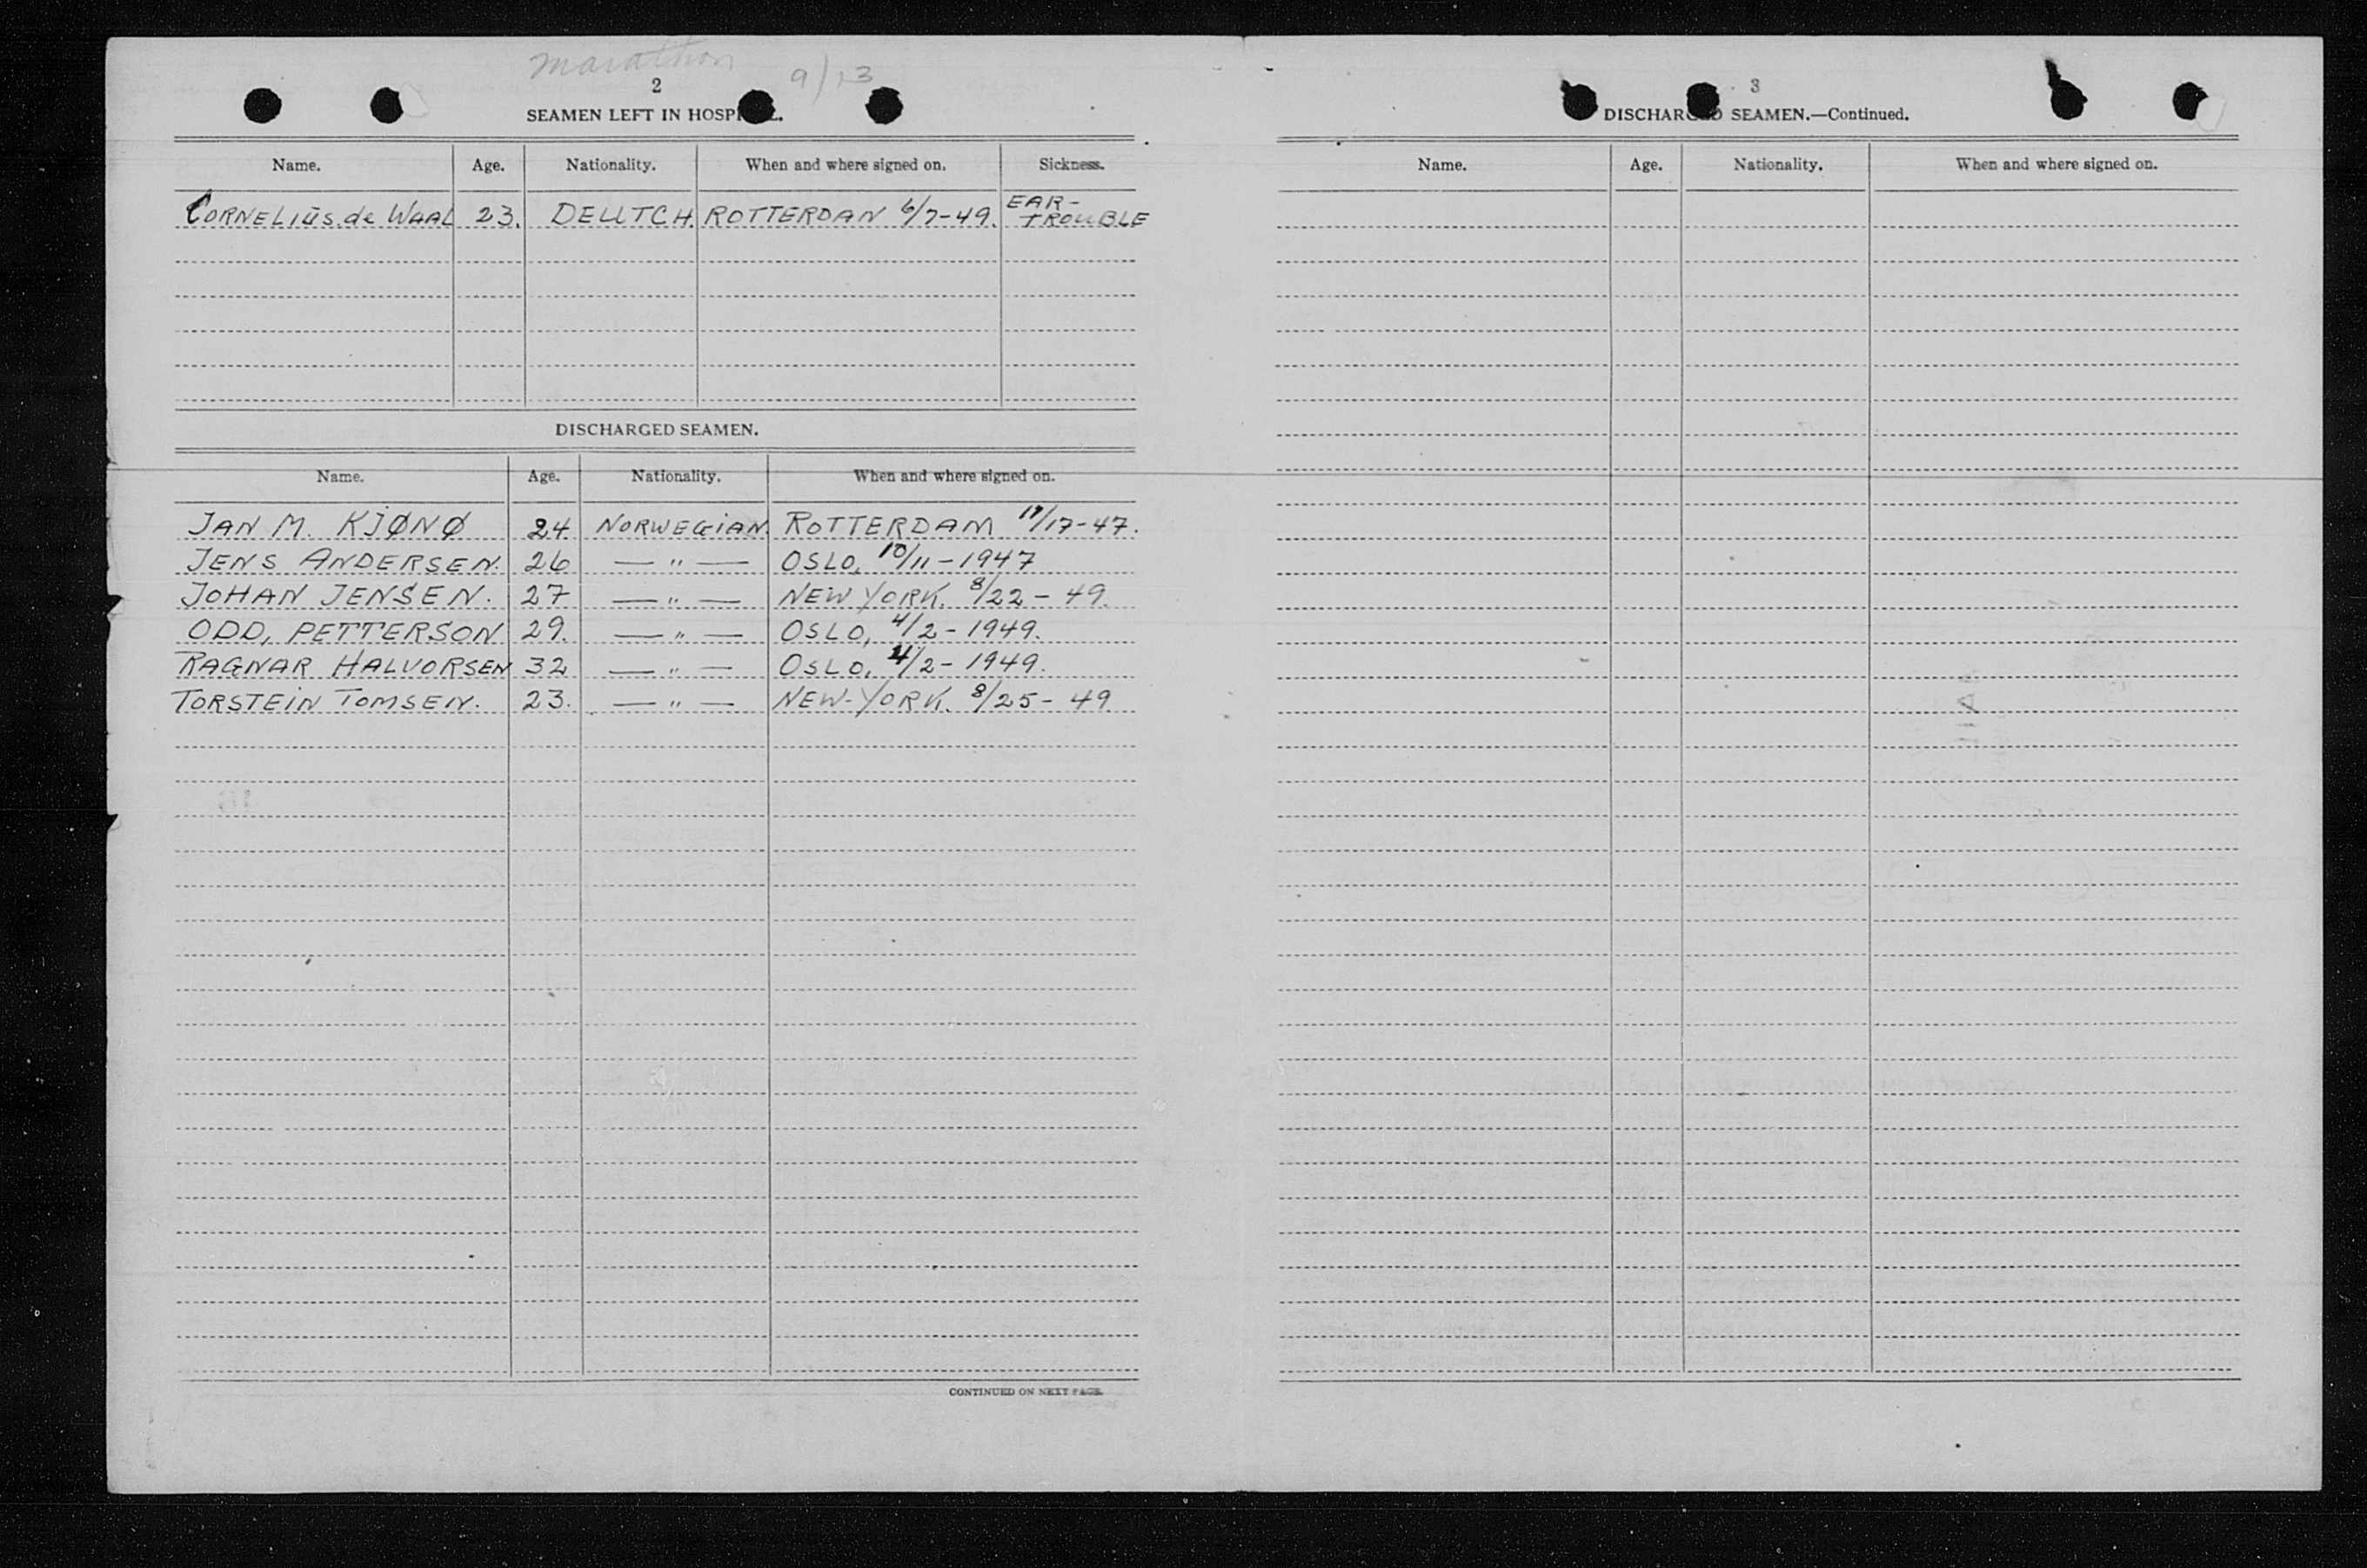 marathon 9/13
2
SEAMEN LEFT IN HOSPITAL.
Name. Age. Nationality. When and where signed on. Sickness.
CORNELIUS. de WAAL 23. DEUTCH. ROTTERDAN 6/7-49. EAR-
TROUBLE
DISCHARGED SEAMEN.
Name. Age. Nationality. When and where signed on.
JAN M. KJØNØ 24 NORWEGIAN. ROTTERDAM /17-47.
JENS ANDERSEN. 26 — " — OSLO, 10/11-1947
JOHAN JENSEN. 27 — " — NEW YORK. 8/22-49.
ODD, PETTERSON 29. — " — OSLO, 4/2-1949.
RAGNAR HALVORSEN 32 — " — OSLO, 4/2-1949.
TORSTEIN TOMSEN. 23. — " — NEW-YORK. 8/25-49
CONTINUED ON NEXT PAGE.
3
DISCHARGED SEAMEN.—Continued.
Name. Age. Nationality. When and where signed on.